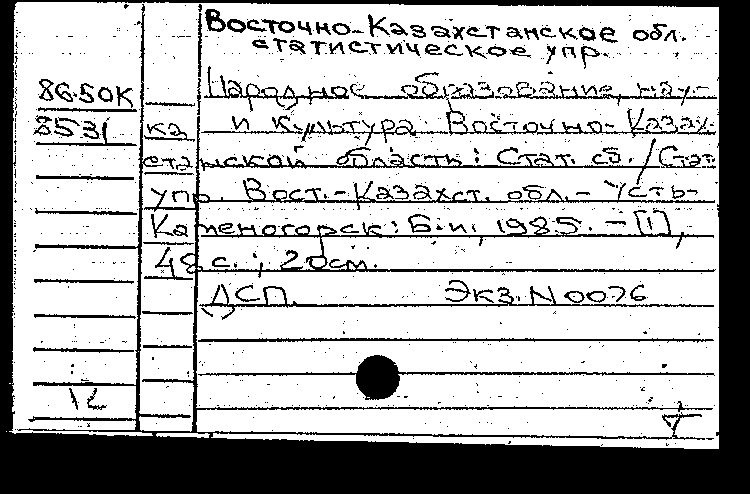 Восточно-Казахстанское обл.
статистическое упр.
86-50К Народное образование, нау-
8531 ка и культура Восточно-Казах-
станской область: Стат. сб. / Стат.
упр. Вост.-Казахст. обл. - Усть-
Каменогорск: Б.и., 1985. - [1],
48 с.; 20 см.
ДСП. Экз. N 0076
12